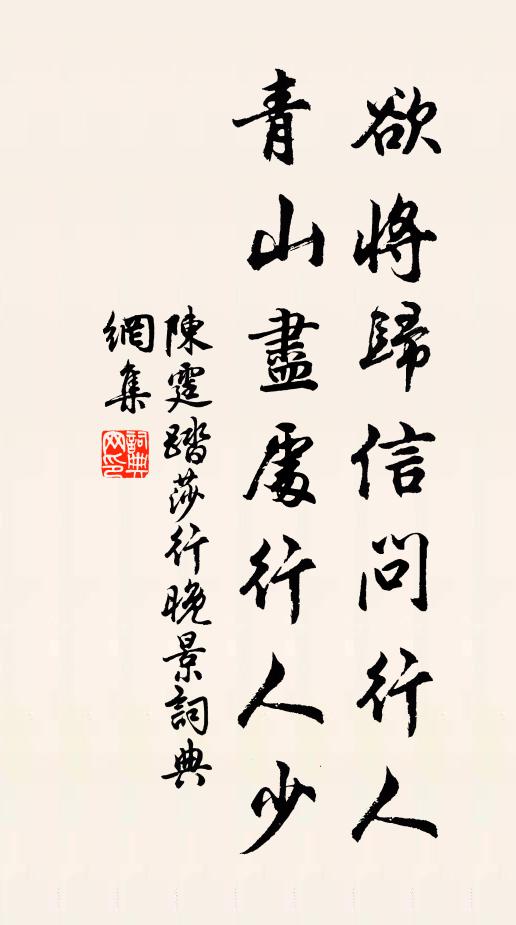 欲將歸信問行人
青山盡處行人少
陳霆踏莎行晚景詞典
網集
詞典
网印